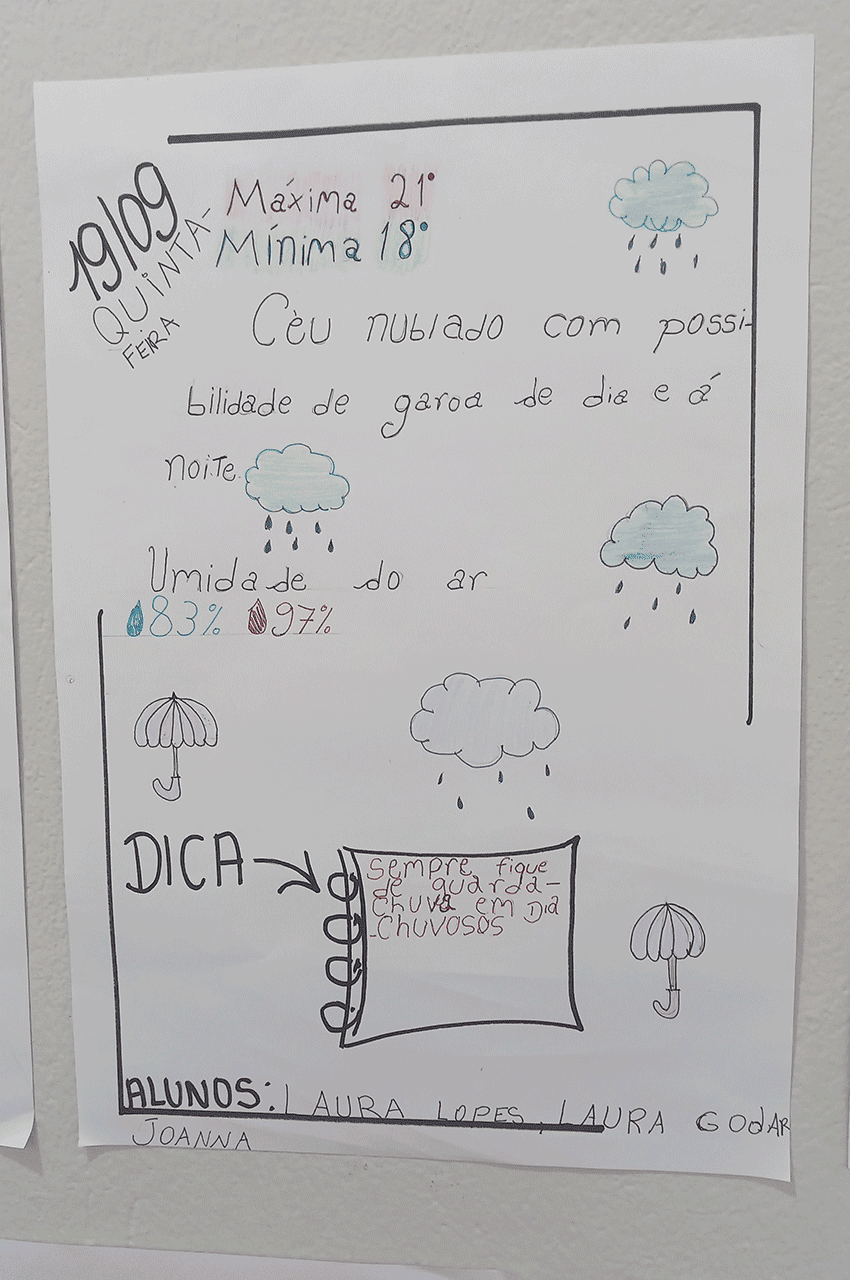 19/09
QUINTA-
FEIRA
Máxima 21°
Mínima 18°
Cèu nublado com possi-
bilidade de garoa de dia e á
noite.
Umidade do ar
83% 97%
DICA
sempre fique
de guarda-
chuva em Dia
-CHUVOSOS
ALUNOS: LAURA LOPES, LAURA GODAR
JOANNA